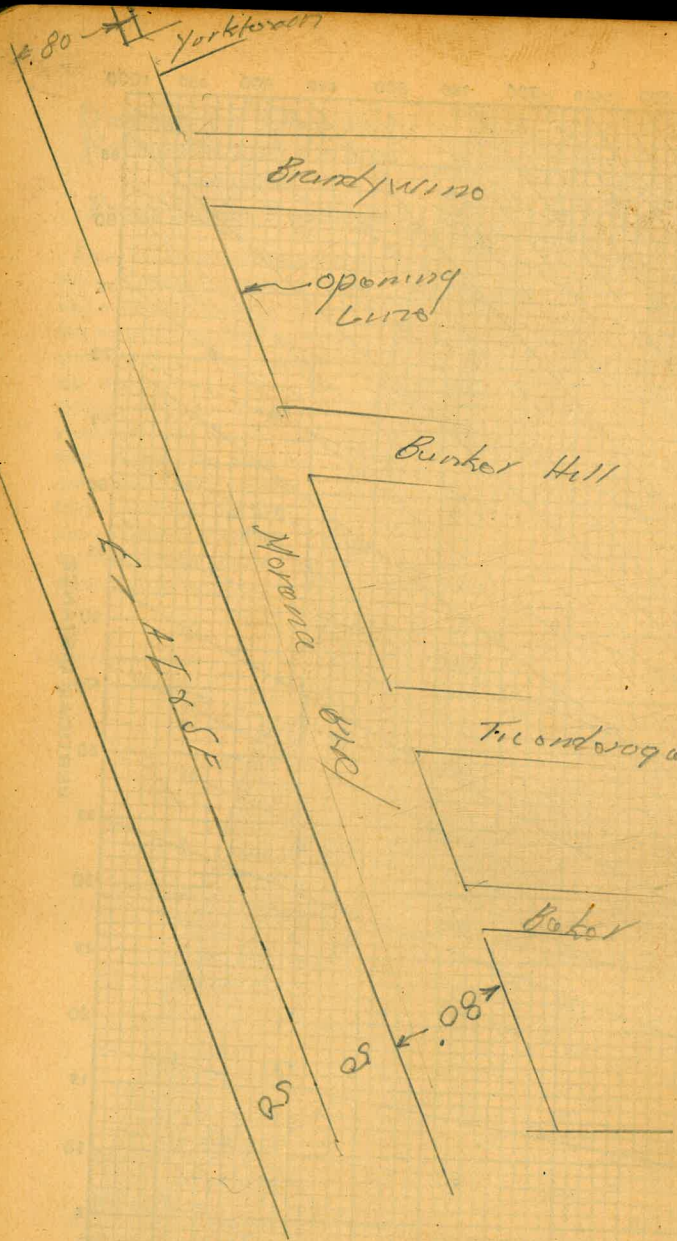 80
Yorktown
Brandywine
opening
Line
Bunker Hill
Morena
Blvd
℄ AT & SF
Ticonderoga
Baker
80'
50
50